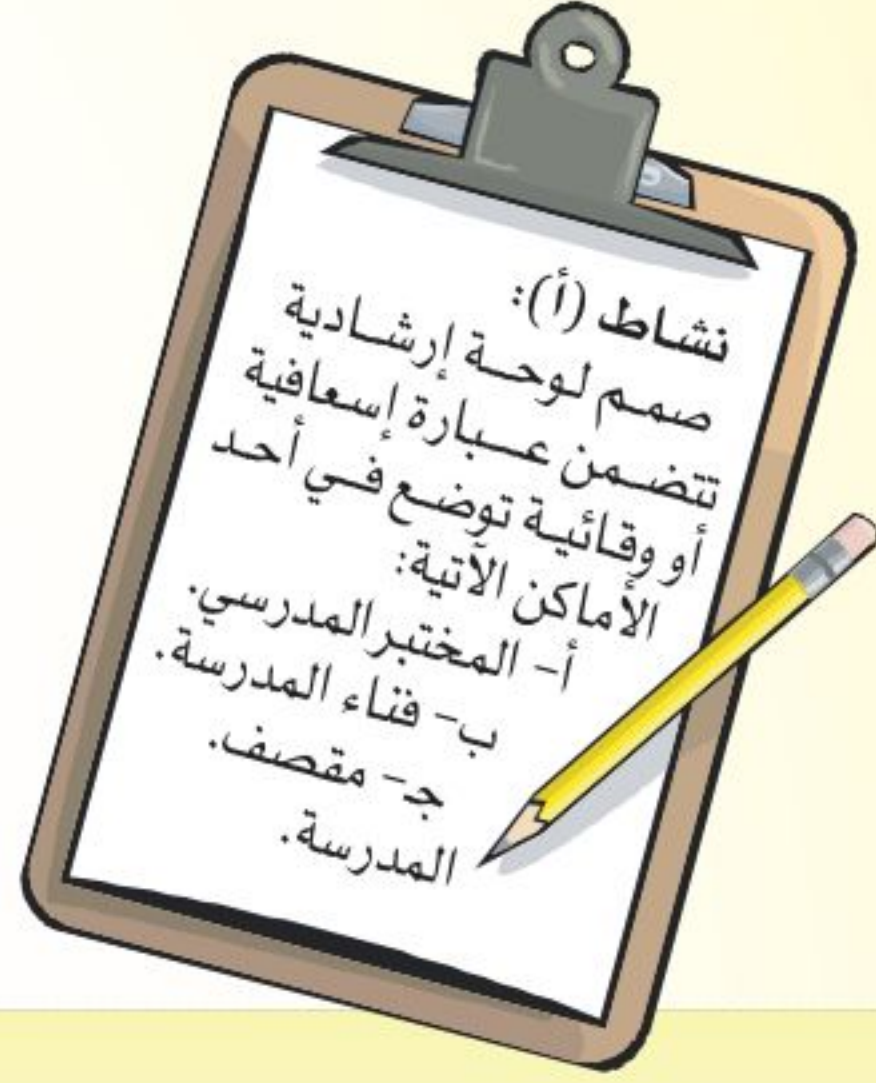 نشاط (أ):
صمم لوحة إرشادية
تتضمن عبارة إسعافية
أو وقائية توضع في أحد
الأماكن الآتية:
أ- المختبر المدرسي.
ب- فناء المدرسة.
جـ- مقصف.
المدرسة.